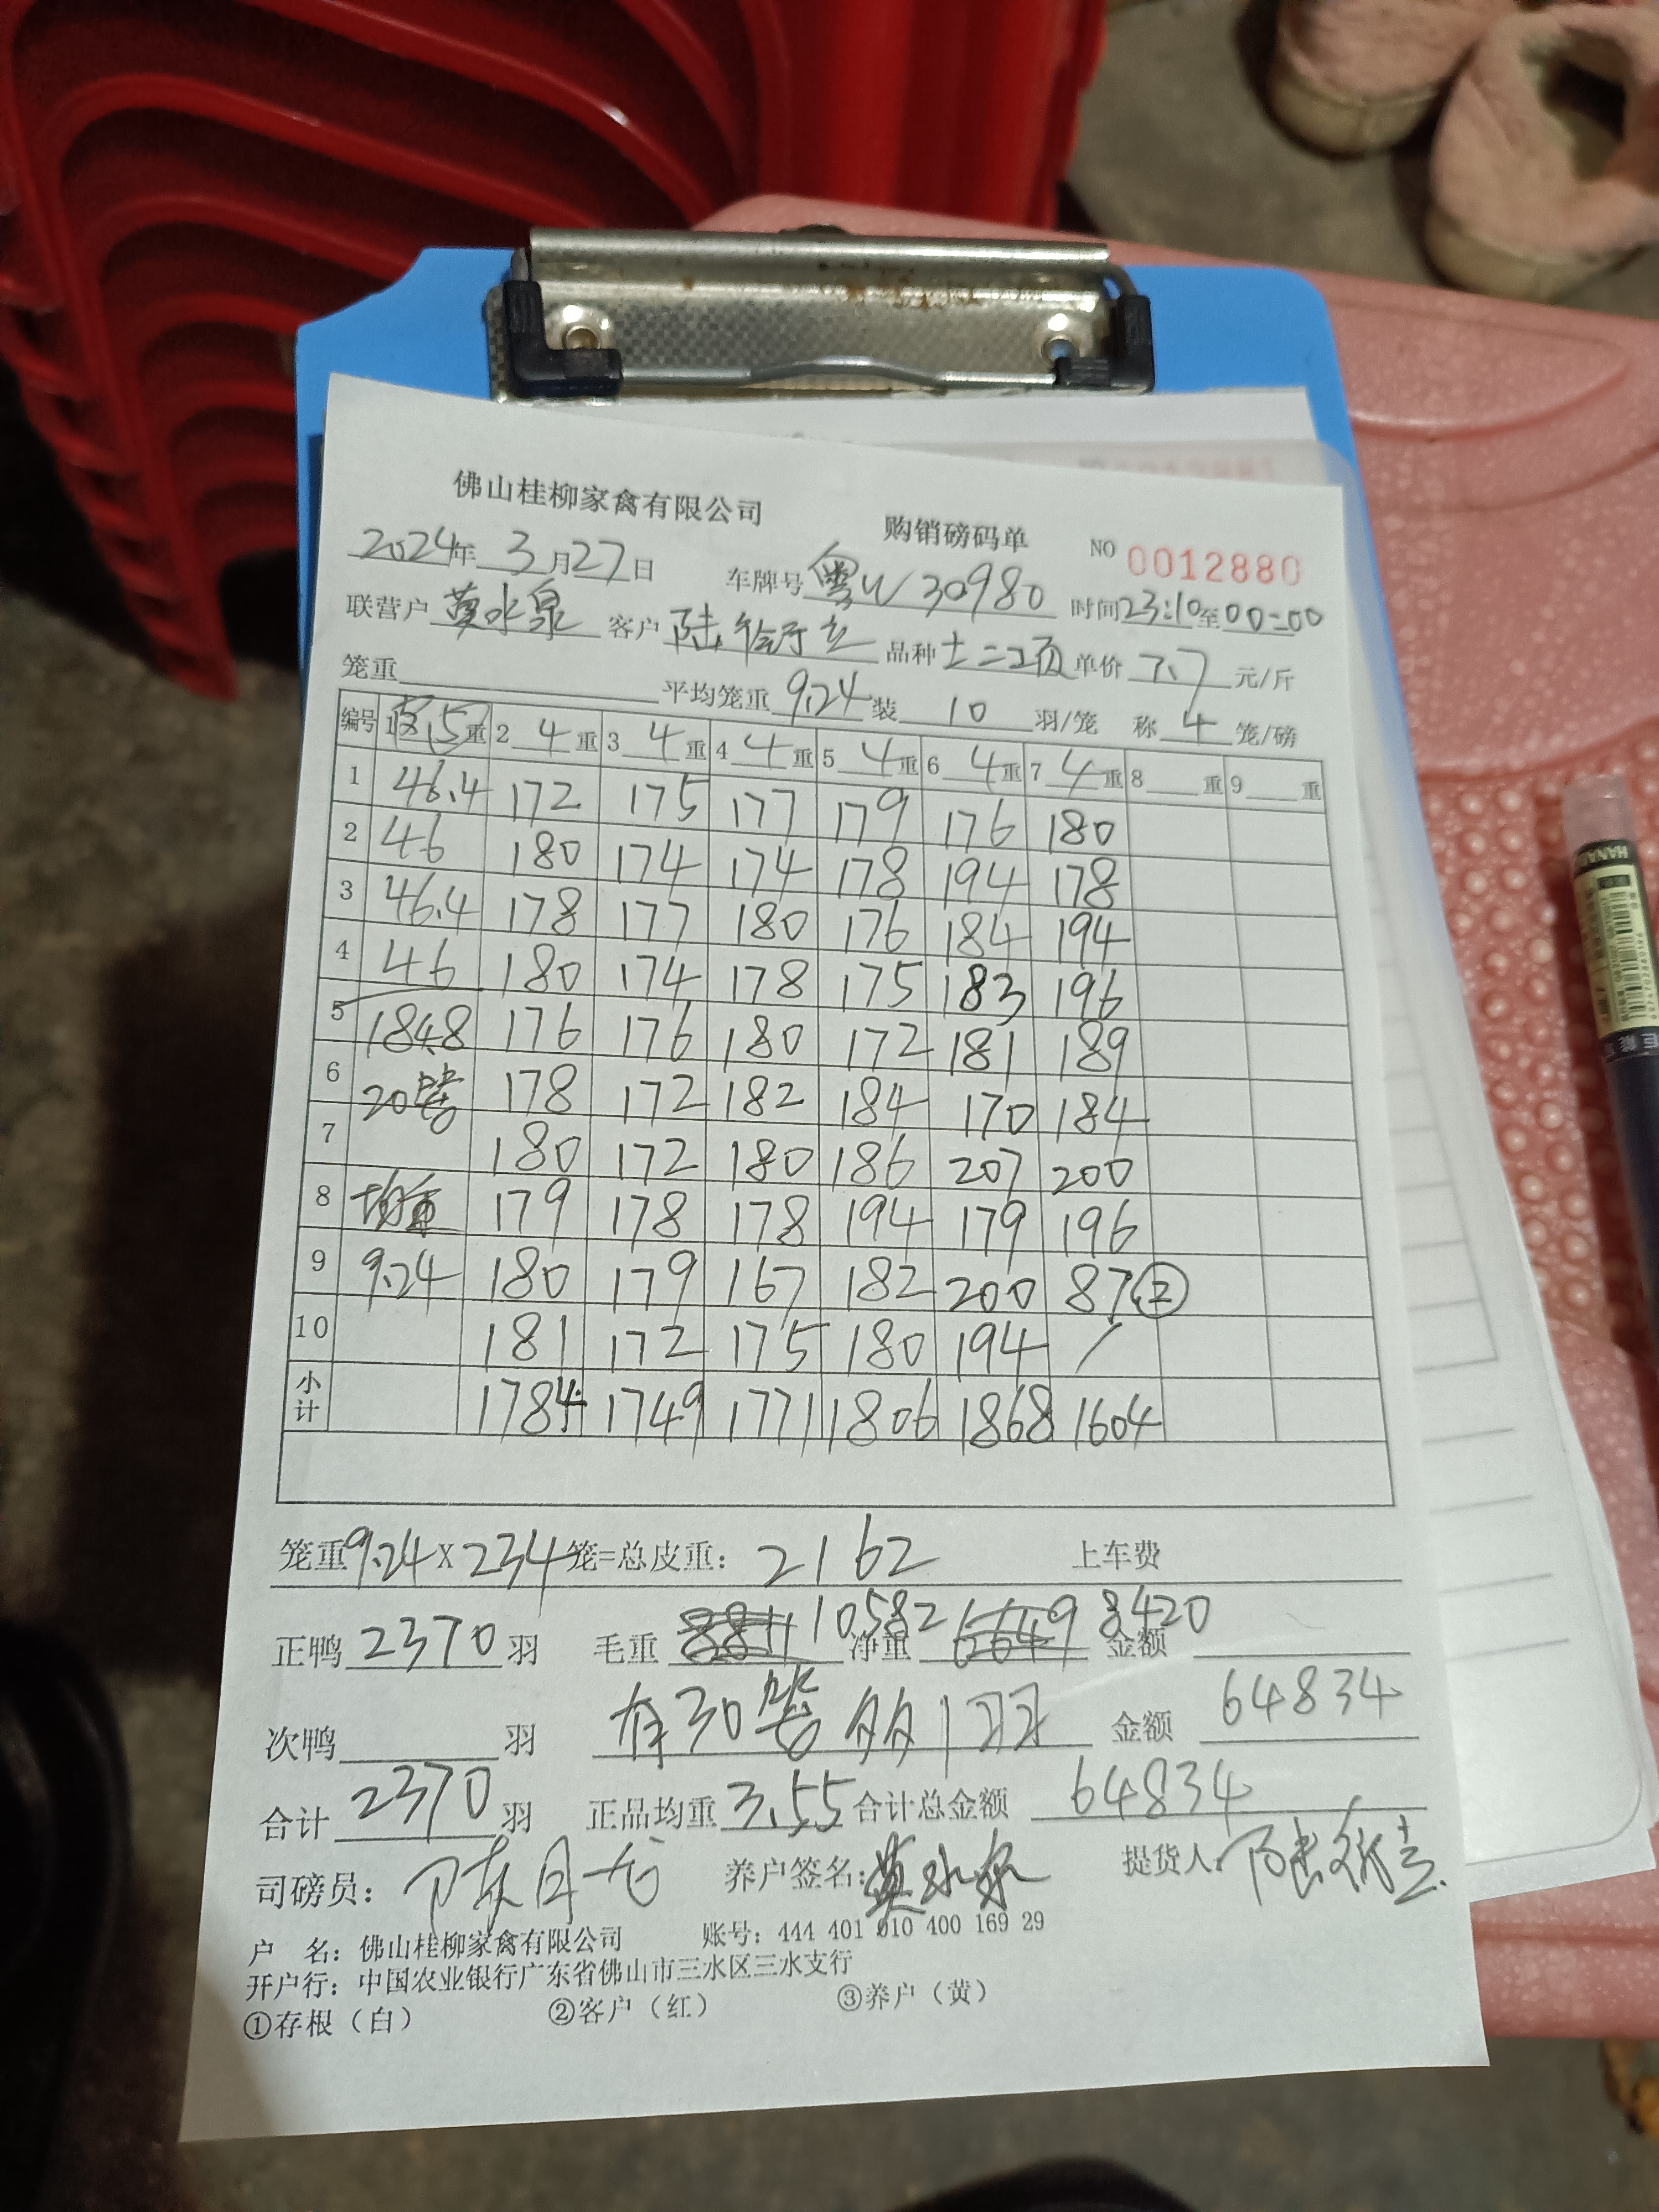 佛山桂柳家禽有限公司 购销磅码单 NO 0012880
2024年 3月27日 车牌号 粤W30980 时间23:10至00:00
联营户 莫水泉 客户 陆 品种 土二项 单价 7.7 元/斤
笼重 平均笼重 9.24 装 10 羽/笼 称 4 笼/磅
编号 1 皮.5 重 2 4 重 3 4 重 4 4 重 5 4 重 6 4 重 7 4 重 8 重 9 重
1 46.4 172 175 177 179 176 180
2 46 180 174 174 178 194 178
3 46.4 178 177 180 176 184 194
4 46 180 174 178 175 183 196
5 184.8 176 176 180 172 181 189
6 20笼 178 172 182 184 170 184
7 180 172 180 186 207 200
8 均重 179 178 178 194 179 196
9 9.24 180 179 167 182 200 87②
10 181 172 175 180 194 /
小计 1784 1749 1771 1806 1868 1604
笼重9.24X234笼=总皮重: 2162 上车费
正鸭 2370 羽 毛重 10582 净重 8420 金额
次鸭 羽 有30笼多1羽 金额 64834
合计 2370 羽 正品均重 3.55 合计总金额 64834
司磅员: 陈月 养户签名: 莫水泉 提货人: 陆
户 名: 佛山桂柳家禽有限公司 账号: 444 401 010 400 169 29
开户行: 中国农业银行广东省佛山市三水区三水支行
①存根（白） ②客户（红） ③养户（黄）